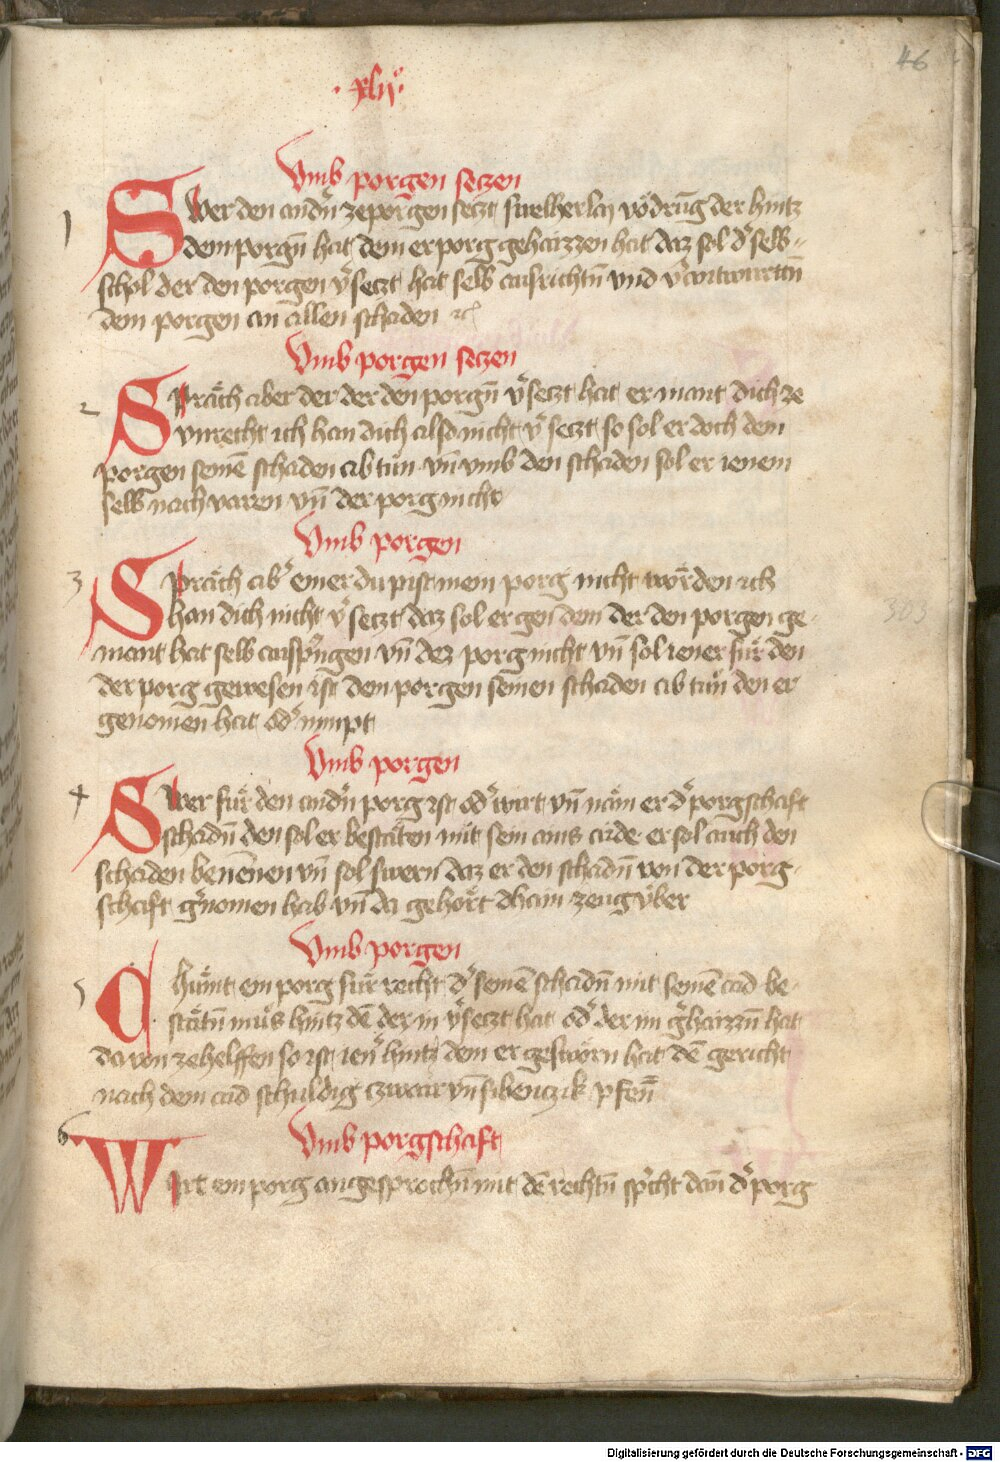 46
· xlij° ·
Vmb porgen seczen
1 Swer den andn̄ ze porgen seczt swelherlay vodrūg der hintz
dem porgn̄ hat dem er porg gehaizzen hat daz sol dˢ selb
schol der den porgen vˢseczt hat selb ausrichtn̄ vnd vˢantwurttn̄
dem porgen an allen schaden ꝛc
Vmb porgen seczen
2 Spräch aber der der den porgn̄ vˢseczt hat er mant dich ze
vnrecht ich han dich also nicht vˢseczt so sol er doch dem
porgen seinē schaden ab tůn vn̄ vmb den schaden sol er ienem
selb nach varen vn̄ der porg nicht
Vmb porgen
3 Spräch abˢ einer du pist mein porg nicht worden ich
han dich nicht vˢseczt daz sol er gen dem der den porgen ge-
mant hat selb auspringen vn̄ dez porg nicht vn̄ sol iener für den
der porg gewesen ist dem porgen seinen schaden ab tůn den er
genomen hat odˢ nimpt
Vmb porgen
4 Swer für den andn̄ porg ist odˢ wirt vn̄ näm er dˢ porgschaft
schadn̄ den sol er bestäten mit sein ains aide er sol auch den
schaden benennen vn̄ sol swern daz er den schadn̄ von der porg-
schaft gˢnomen hab vn̄ da gehört dhain zeug vber
Vmb porgen
5 Chümt ein porg für recht dˢ seinē schadn̄ mit seinē aid be-
stätn̄ můs hintz dē der in vˢseczt hat odˢ der im gˢhaizzn̄ hat
da von ze helffen so ist ienˢ hintz dem er gesworn hat dē gericht
nach dem aid schuldig zwai vn̄ sibenczik pfen̄
Vmb porgschaft
6 Wirt ein porg angesprochn̄ mit dē rechtn̄ spricht dan̄ dˢ porg
303
Digitalisierung gefördert durch die Deutsche Forschungsgemeinschaft - DFG